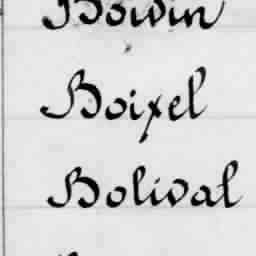 Boivin
Boixel
Bolival